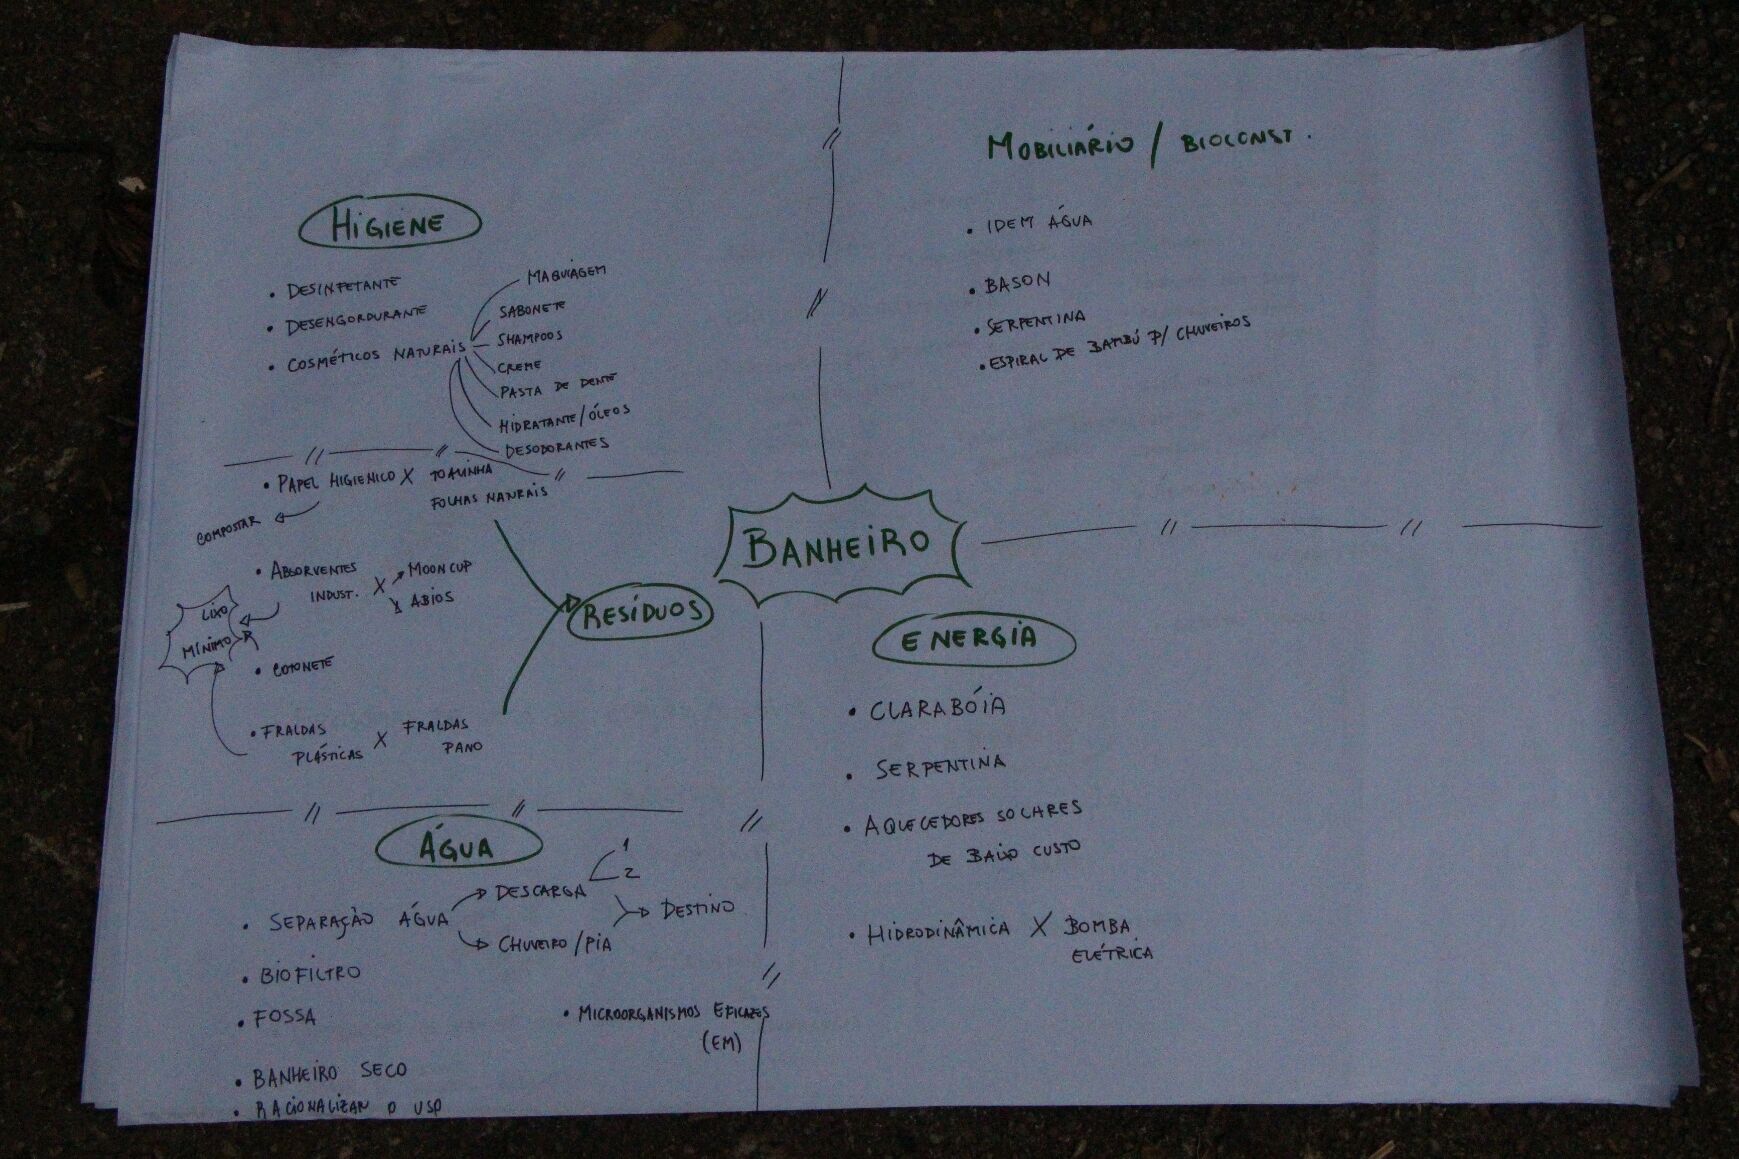 HIGIENE
• DESINFETANTE
• DESENGORDURANTE
• COSMÉTICOS NATURAIS
MAQUIAGEM
SABONETE
SHAMPOOS
CREME
PASTA DE DENTE
HIDRATANTE/ÓLEOS
DESODORANTES
MOBILIÁRIO / BIOCONST.
• IDEM ÁGUA
• BASON
• SERPENTINA
• ESPIRAL DE BAMBÚ P/ CHUVEIROS
BANHEIRO
RESÍDUOS
• PAPEL HIGIENICO X TOALINHA
FOLHAS NATURAIS
COMPOSTAR
• ABSORVENTES
INDUST. X
MOONCUP
ABIOS
LIXO
MÍNIMO
• COTONETE
• FRALDAS
PLÁSTICAS X
FRALDAS
PANO
ENERGIA
• CLARABÓIA
• SERPENTINA
• AQUECEDORES SOLARES
DE BAIXO CUSTO
• HIDRODINÂMICA X BOMBA
ELÉTRICA
ÁGUA
• SEPARAÇÃO ÁGUA
DESCARGA
1
2
CHUVEIRO/PIA
DESTINO
• BIOFILTRO
• FOSSA
• MICROORGANISMOS EFICAZES
(EM)
• BANHEIRO SECO
• RACIONALIZAR O USO